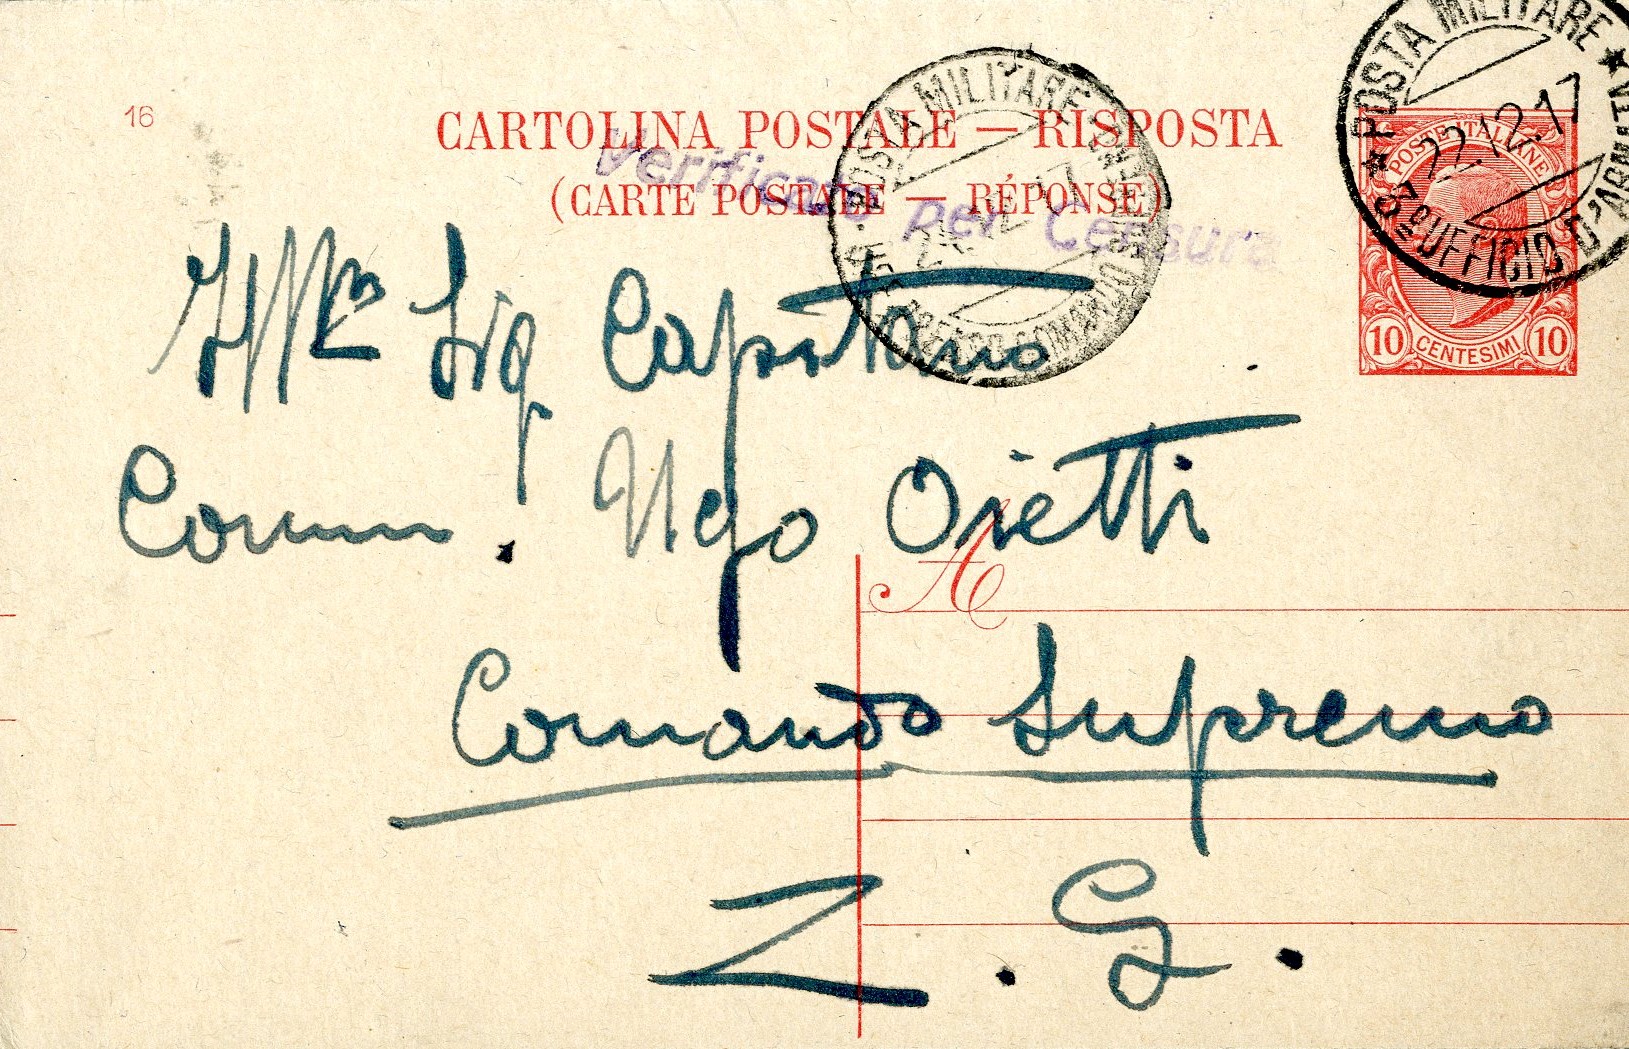 16
CARTOLINA POSTALE — RISPOSTA
(CARTE POSTALE — RÉPONSE)
Verificato per Censura
POSTA MILITARE
22.12.17
UFFICIO D'ARMATA
POSTA MILITARE
COMANDO
POSTE ITALIANE
10 CENTESIMI 10
Ill.mo Sig Capitano
Comm. Ugo Ojetti
A
Comando Supremo
Z. G.